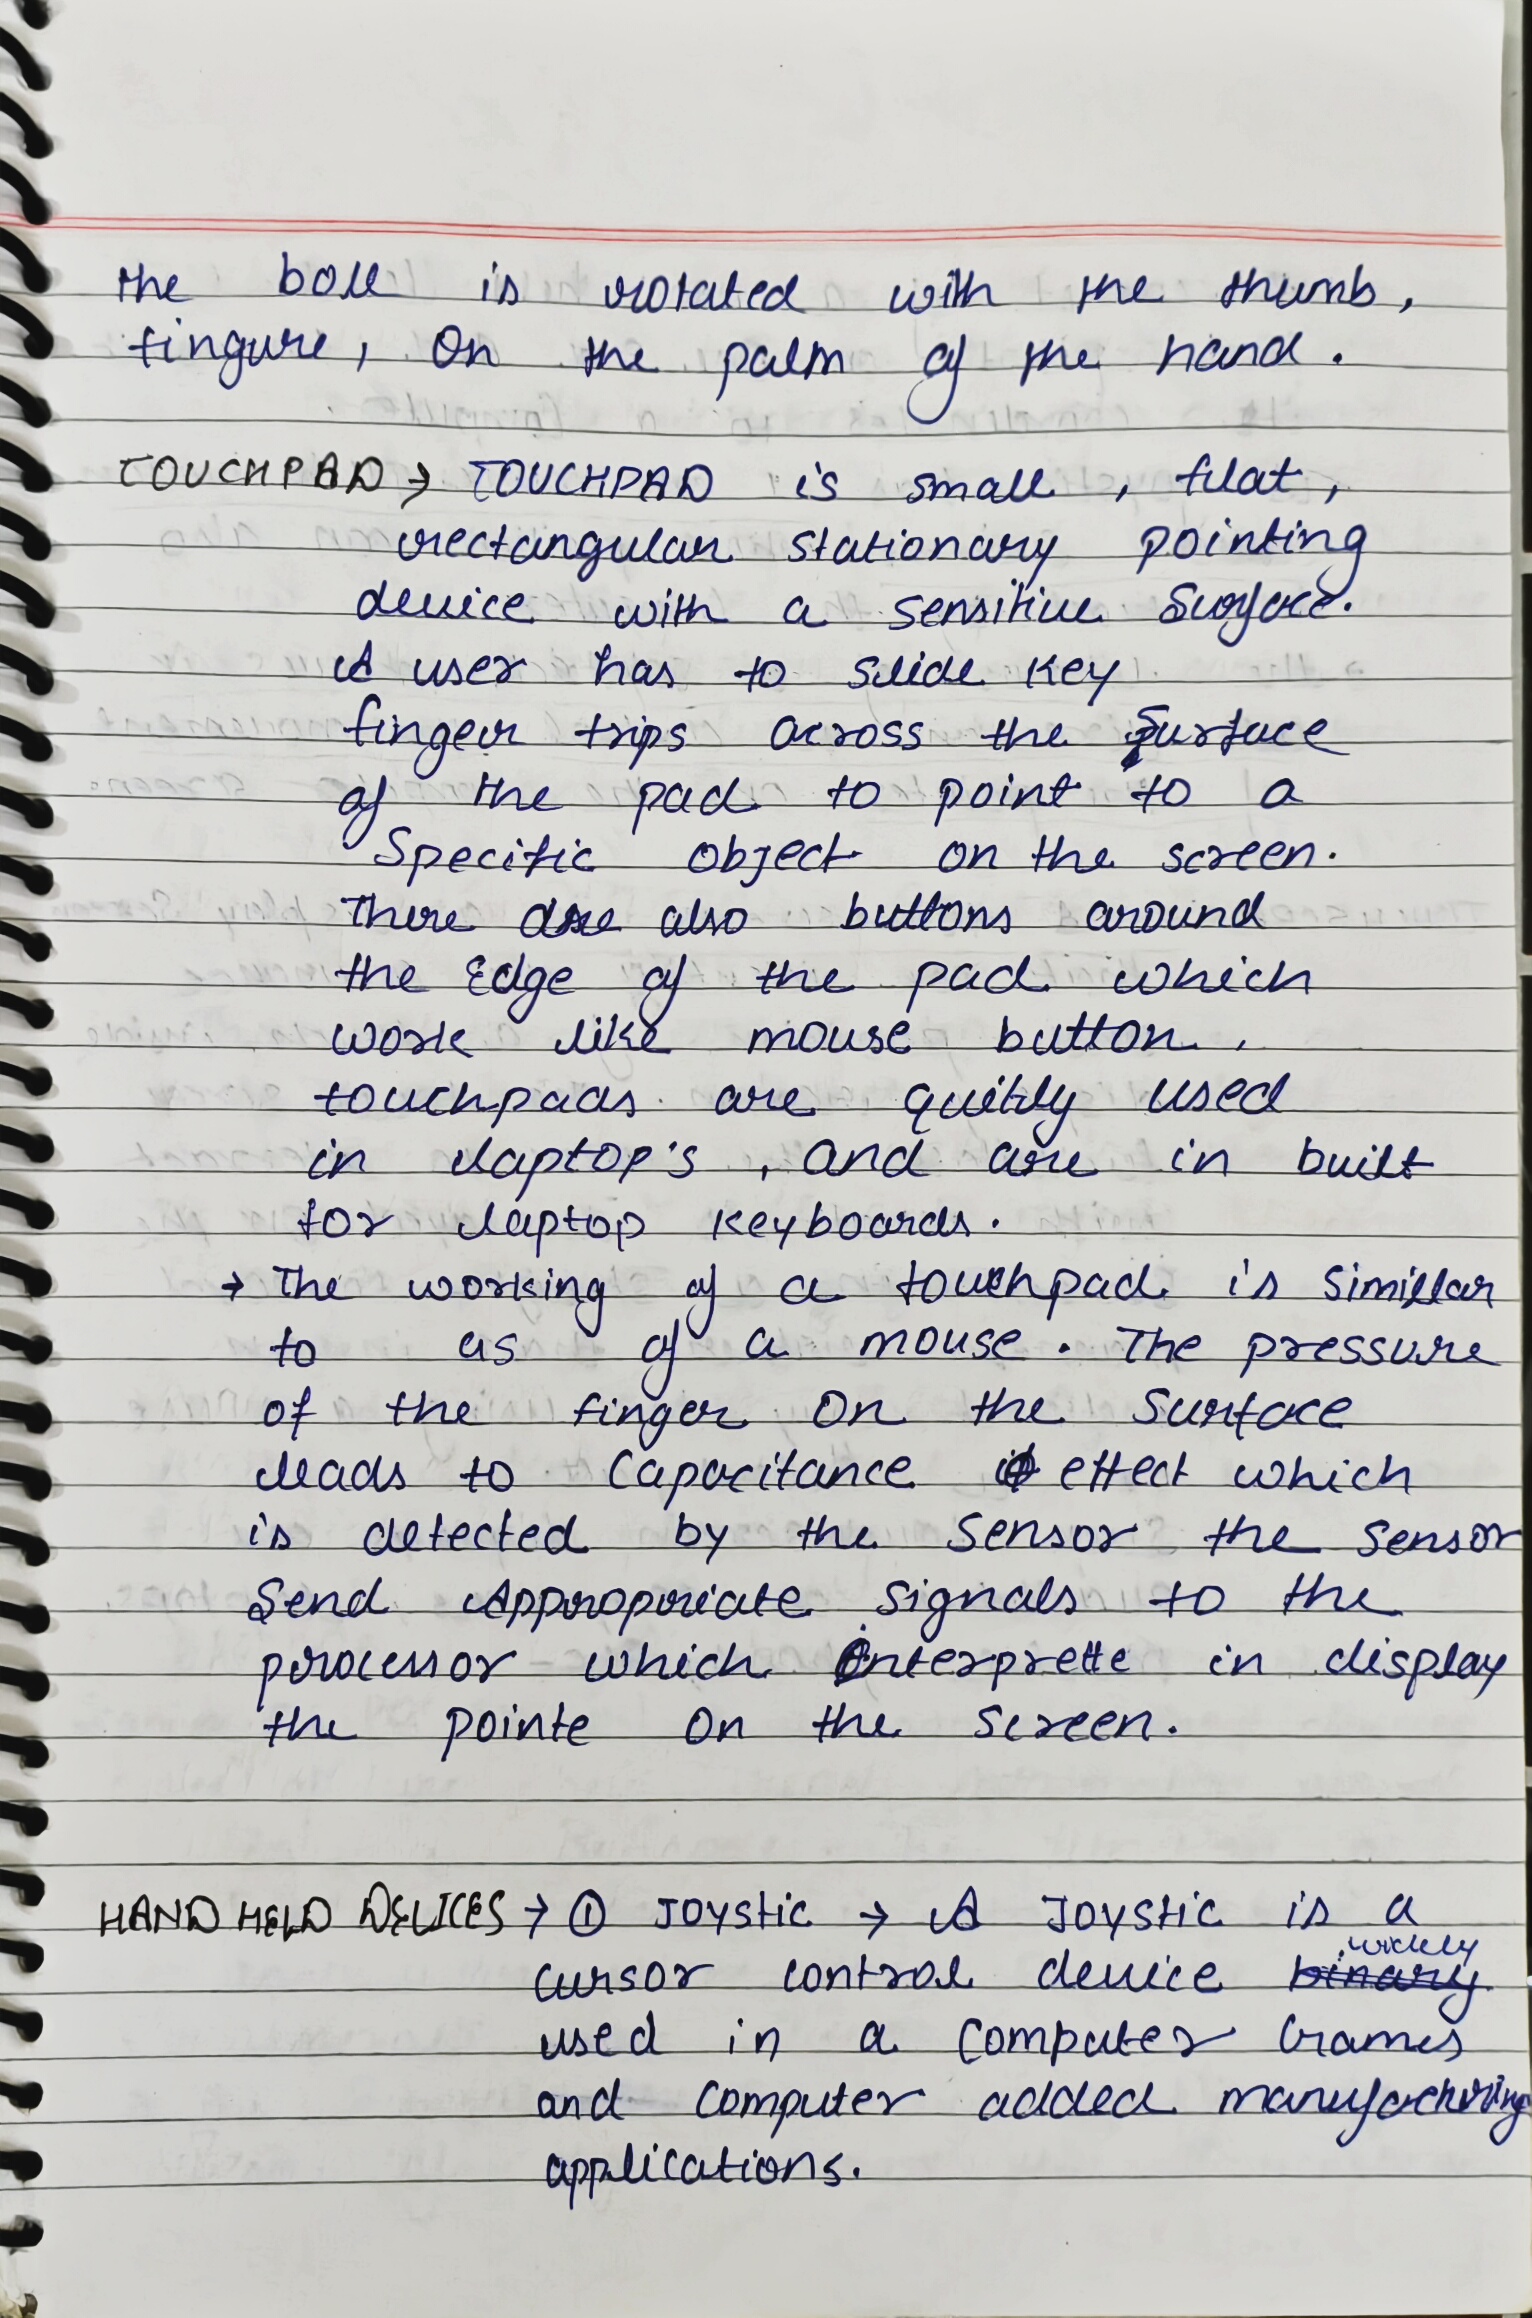 the ball is rotated with the thumb,
fingure, On the palm of the hand.
TOUCHPAD → TOUCHPAD is small, flat,
rectangular stationary pointing
device with a sensitive Surface.
A user has to slide key
finger trips across the surface
of the pad to point to a
Specific object on the screen.
There are also buttons around
the Edge of the pad which
work like mouse button.
touchpads are used
in laptop's, and are in built
for laptop keyboards.
→ The working of a touchpad is simillar
to as of a mouse. The pressure
of the finger On the Surface
leads to Capacitance effect which
is detected by the Sensor the Sensor
Send Appropriate signals to the
processor which interprette in display
the pointe On the Screen.
HAND HELD DEVICES → ① JOYStic → A JOYStic is a
widely
cursor control device binary
used in a Computer Games
and Computer added manufacturing
applications.